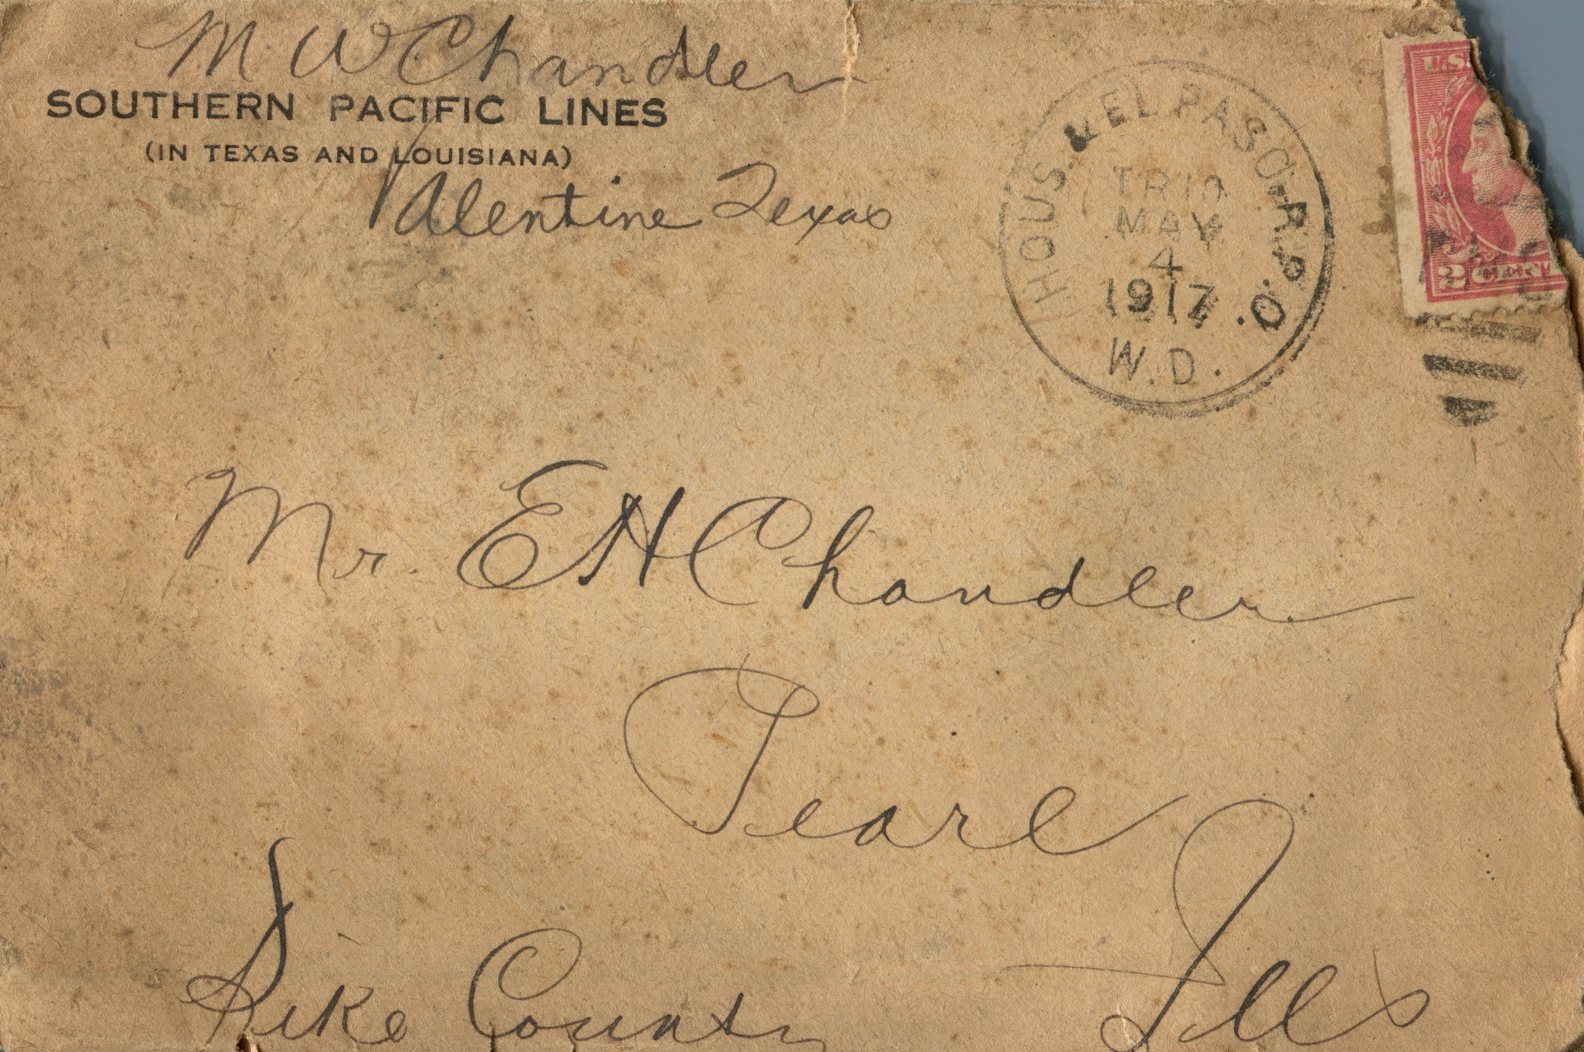 M W Chandler
SOUTHERN PACIFIC LINES
(IN TEXAS AND LOUISIANA)
Valentine Texas
HOUS. & EL PASO. R.P.O.
TR 10
MAY
4
1917
W.D.
U.S.
2 CENT
Mr. E H Chandler
Pearl
Pike County Ills